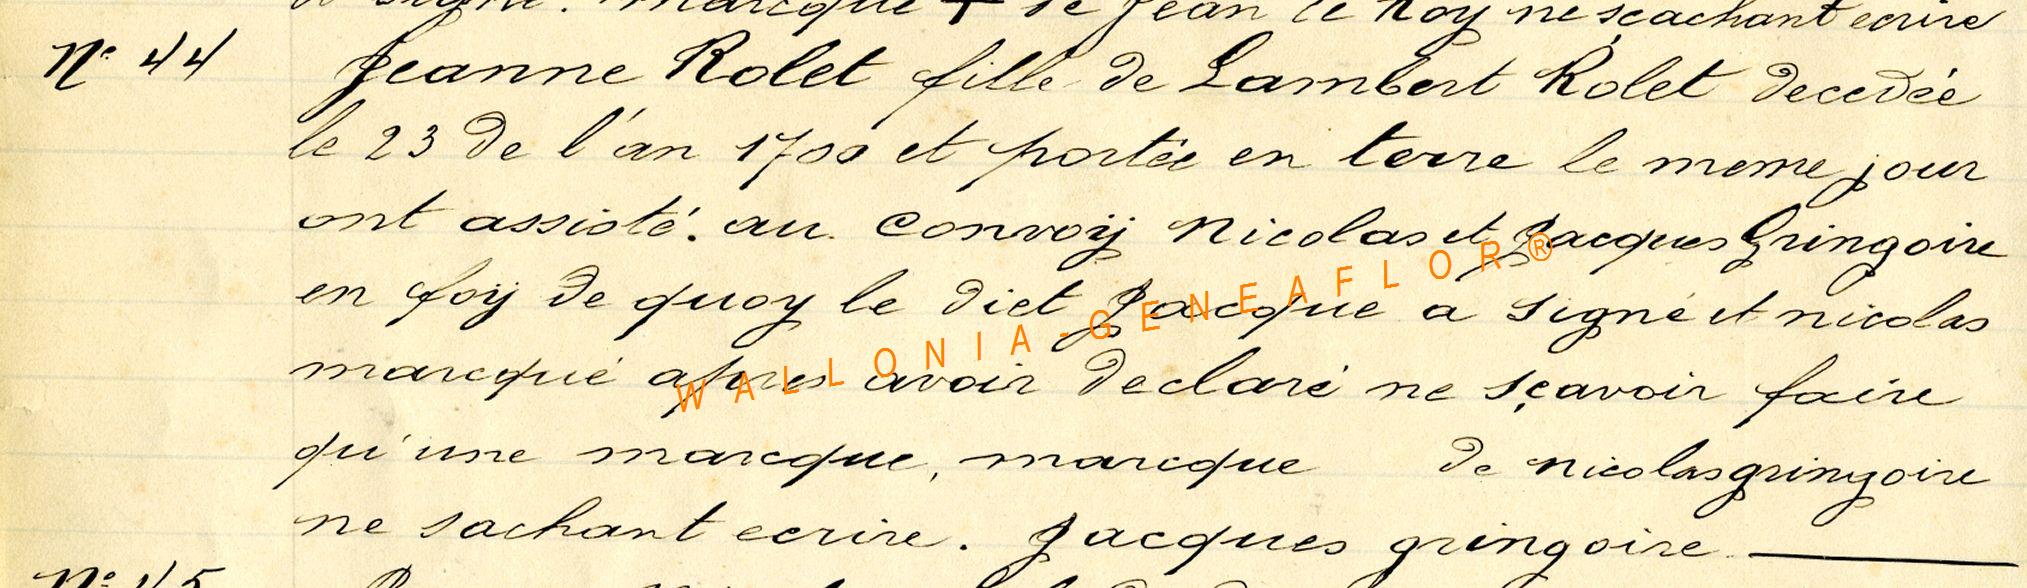 a signé. marcque + de Jean le Roy ne sçachant ecrire
N° 44 Jeanne Rolet fille de Lambert Rolet decedée
le 23 de l'an 1700 et portée en terre le meme jour
ont assisté. au. convoÿ Nicolas et Jacques Gringoire
en foÿ de quoy le dict Jacque a signé et nicolas
marcqué apres avoir declaré ne sçavoir faire
qu'une marcque, marcque de nicolas gringoire
ne sachant ecrire. Jacques gringoire
WALLONIA-GENEAFLOR®
N° 45